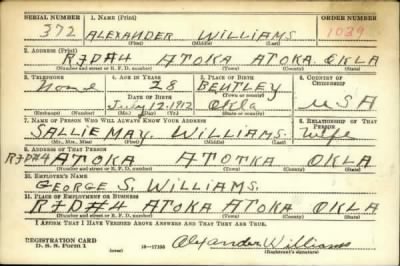 SERIAL NUMBER 1. NAME (Print) ORDER NUMBER
372 ALEXANDER WILLIAMS 1039
(First) (Middle) (Last)
2. ADDRESS (Print)
RFD#4 ATOKA ATOKA. OKLA
(Number and street or R. F. D. number) (Town) (County) (State)
3. TELEPHONE 4. AGE IN YEARS 5. PLACE OF BIRTH 6. COUNTRY OF CITIZENSHIP
None 28 BENTLEY
DATE OF BIRTH (Town or county)
July 12. 1912 Okla USA
(Exchange) (Number) (Mo.) (Day) (Yr.) (State or country)
7. NAME OF PERSON WHO WILL ALWAYS KNOW YOUR ADDRESS 8. RELATIONSHIP OF THAT PERSON
SALLIE MAY. WILLIAMS. Wife
(Mr., Mrs., Miss) (First) (Middle) (Last)
9. ADDRESS OF THAT PERSON
RFD#4 ATOKA ATOTKA OKLA
(Number and street or R. F. D. number) (Town) (County) (State)
10. EMPLOYER'S NAME
GEORGE S. WILLIAMS.
11. PLACE OF EMPLOYMENT OR BUSINESS
RFD#4 ATOKA ATOKA OKLA
(Number and street or R. F. D. number) (Town) (County) (State)
I AFFIRM THAT I HAVE VERIFIED ABOVE ANSWERS AND THAT THEY ARE TRUE.
REGISTRATION CARD
D. S. S. Form 1 Alexander Williams
(Registrant's signature)